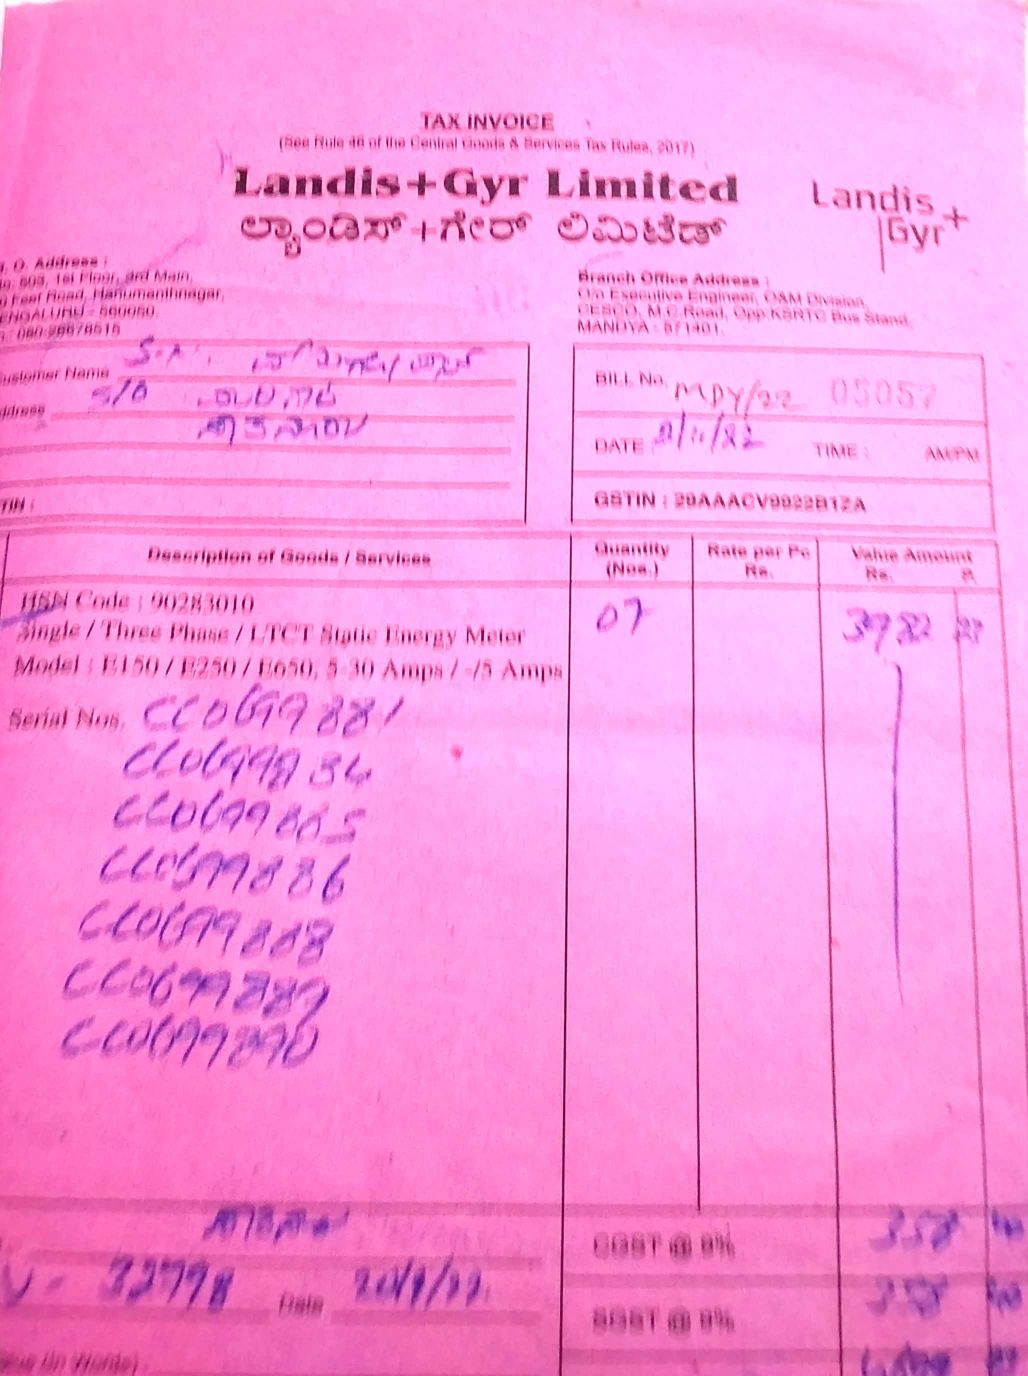 TAX INVOICE
(See Rule 46 of the Central Goods & Services Tax Rules, 2017)
Landis+Gyr Limited
ಲ್ಯಾಂಡಿಸ್+ಗೇರ್ ಲಿಮಿಟೆಡ್
Landis
Gyr+
O. Address :
503, 1st Floor, 3rd Main,
Feet Road, Hanumanthnagar,
BENGALURU - 560050.
080-26678615
Branch Office Address :
O/o Executive Engineer, O&M Division,
CESCO, M.C.Road, Opp.KSRTC Bus Stand,
MANDYA - 571401.
Customer Name
Address S/O
TIN :
BILL No. MDY/22 05057
DATE TIME : AM/PM
GSTIN : 29AAACV9922B1ZA
Description of Goods / Services Quantity (Nos.) Rate per Pc Rs. Value Amount Rs. P.
HSN Code : 90283010
Single / Three Phase / LTCT Static Energy Meter 07 3982
Model : E150 / E250 / E650, 5-30 Amps / -/5 Amps
Serial Nos. CC0699881
CC0699834
CC0699885
CC0699886
CC0699888
CC0699889
CC0699890
CGST @ 9% 358
32798 Date
SGST @ 9% 358
(In Words)